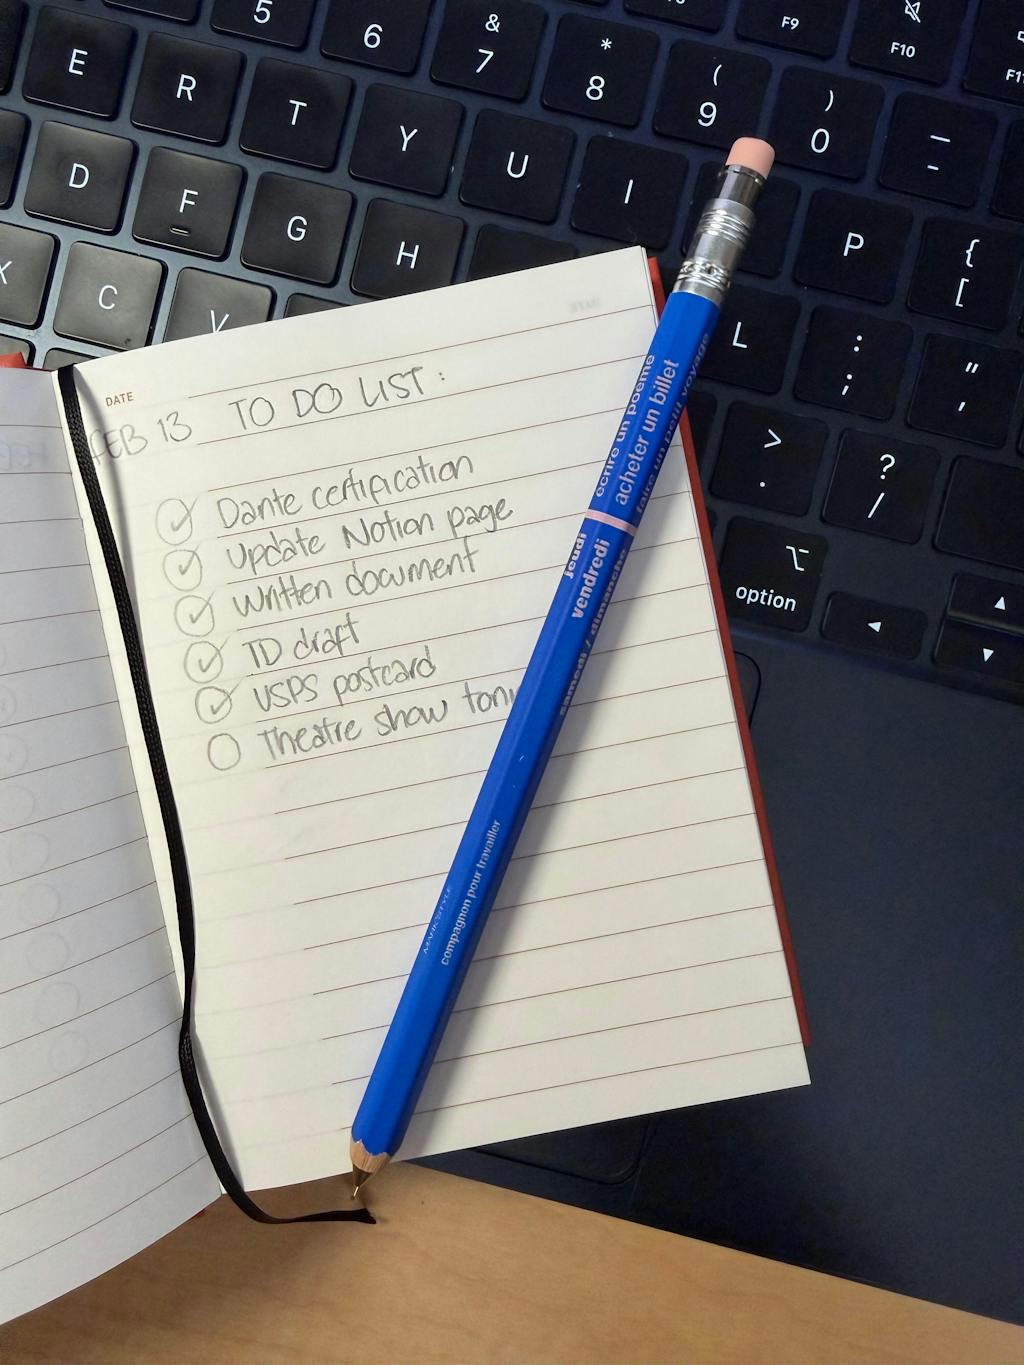 5
6
&
7
*
8
(
9
)
0
F9
F10
—
-
E
R
T
Y
U
I
P
{
[
D
F
G
H
L
:
;
"
,
X
C
V
>
.
?
/
option
DATE
FEB 13 TO DO LIST:
Dante certification
Update Notion page
Written document
TD draft
USPS postcard
Theatre show
écrire un poème
acheter un billet
faire un petit voyage
jeudi
vendredi
samedi / dimanche
MARK'STYLE
compagnon pour travailler